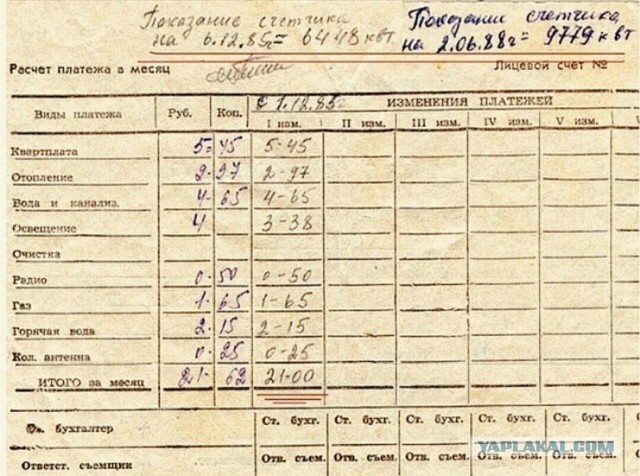 Показание счетчика Показания счетчика
на 6.12.85г = 6448 квт на 2.06.88г = 9779 квт
Расчет платежа в месяц Лицевой счет №
Виды платежа Руб. Коп. с 1.12.85г ИЗМЕНЕНИЯ ПЛАТЕЖЕЙ
I изм. II изм. III изм. IV изм. V изм. V
Квартплата 5 = 45 5-45
Отопление 2 - 97 2-97
Вода и канализ. 4 - 65 4-65
Освещение 4 3-38
Очистка
Радио 0 - 50 0-50
Газ 1 - 65 1-65
Горячая вода 2 - 15 2-15
Кол. антенна 0 - 25 0-25
ИТОГО за месяц 21 - 62 21-00
бухгалтер Ст. бухг. Ст. бухг. Ст. бухг. Ст. бухг. Ст. бухг. Ст
YAPLAKAL.COM
Ответст. съемщик Отв. съем. Отв. съем. Отв. съем. Отв. съем. Отв. съем. От